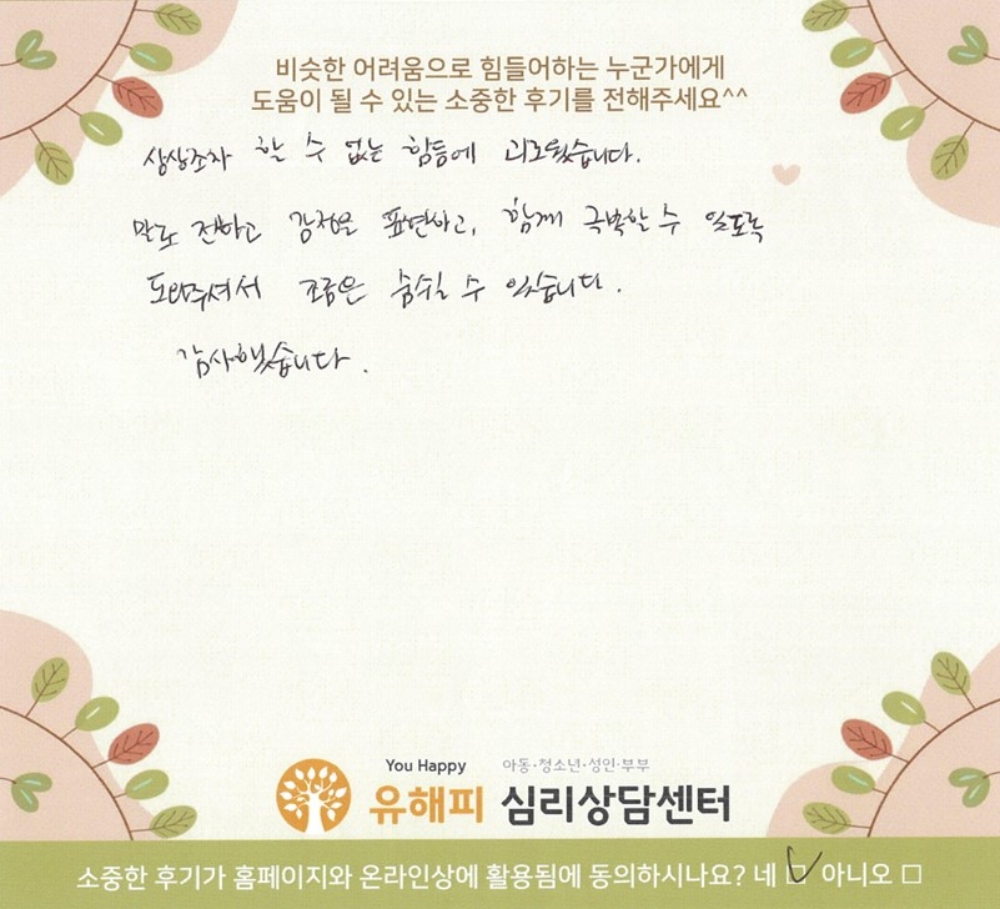 비슷한 어려움으로 힘들어하는 누군가에게
도움이 될 수 있는 소중한 후기를 전해주세요^^
상상조차 할 수 없는 힘듬에 괴로웠습니다.
말로 전하고 감정을 표현하고, 함께 극복할 수 있도록
도와주셔서 조금은 숨쉴 수 있습니다.
감사했습니다.
You Happy 아동·청소년·성인·부부
유해피 심리상담센터
소중한 후기가 홈페이지와 온라인상에 활용됨에 동의하시나요? 네 ☑ 아니오 □